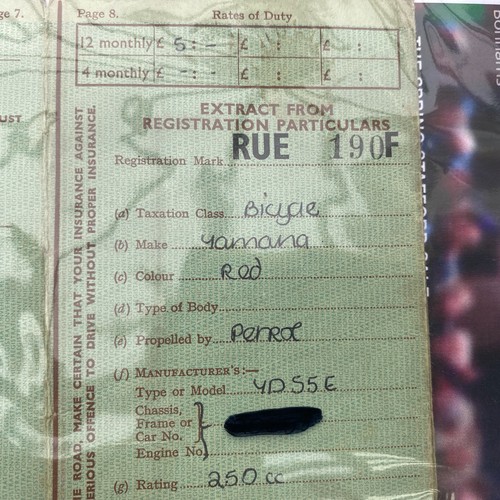 ge 7.
Page 8.
Rates of Duty
12 monthly £ 5 : - £ : £ :
4 monthly £ - : - £ : £ :
UST
EXTRACT FROM
REGISTRATION PARTICULARS
Registration Mark RUE 190F
(a) Taxation Class Bicycle
(b) Make Yamaha
(c) Colour Red
(d) Type of Body
(e) Propelled by Petrol
(f) MANUFACTURER'S:—
Type or Model YDS5E
Chassis,
Frame or
Car No.
Engine No.
(g) Rating 250 cc
HE ROAD, MAKE CERTAIN THAT YOUR INSURANCE AGAINST
ERIOUS OFFENCE TO DRIVE WITHOUT PROPER INSURANCE.
Bonhams